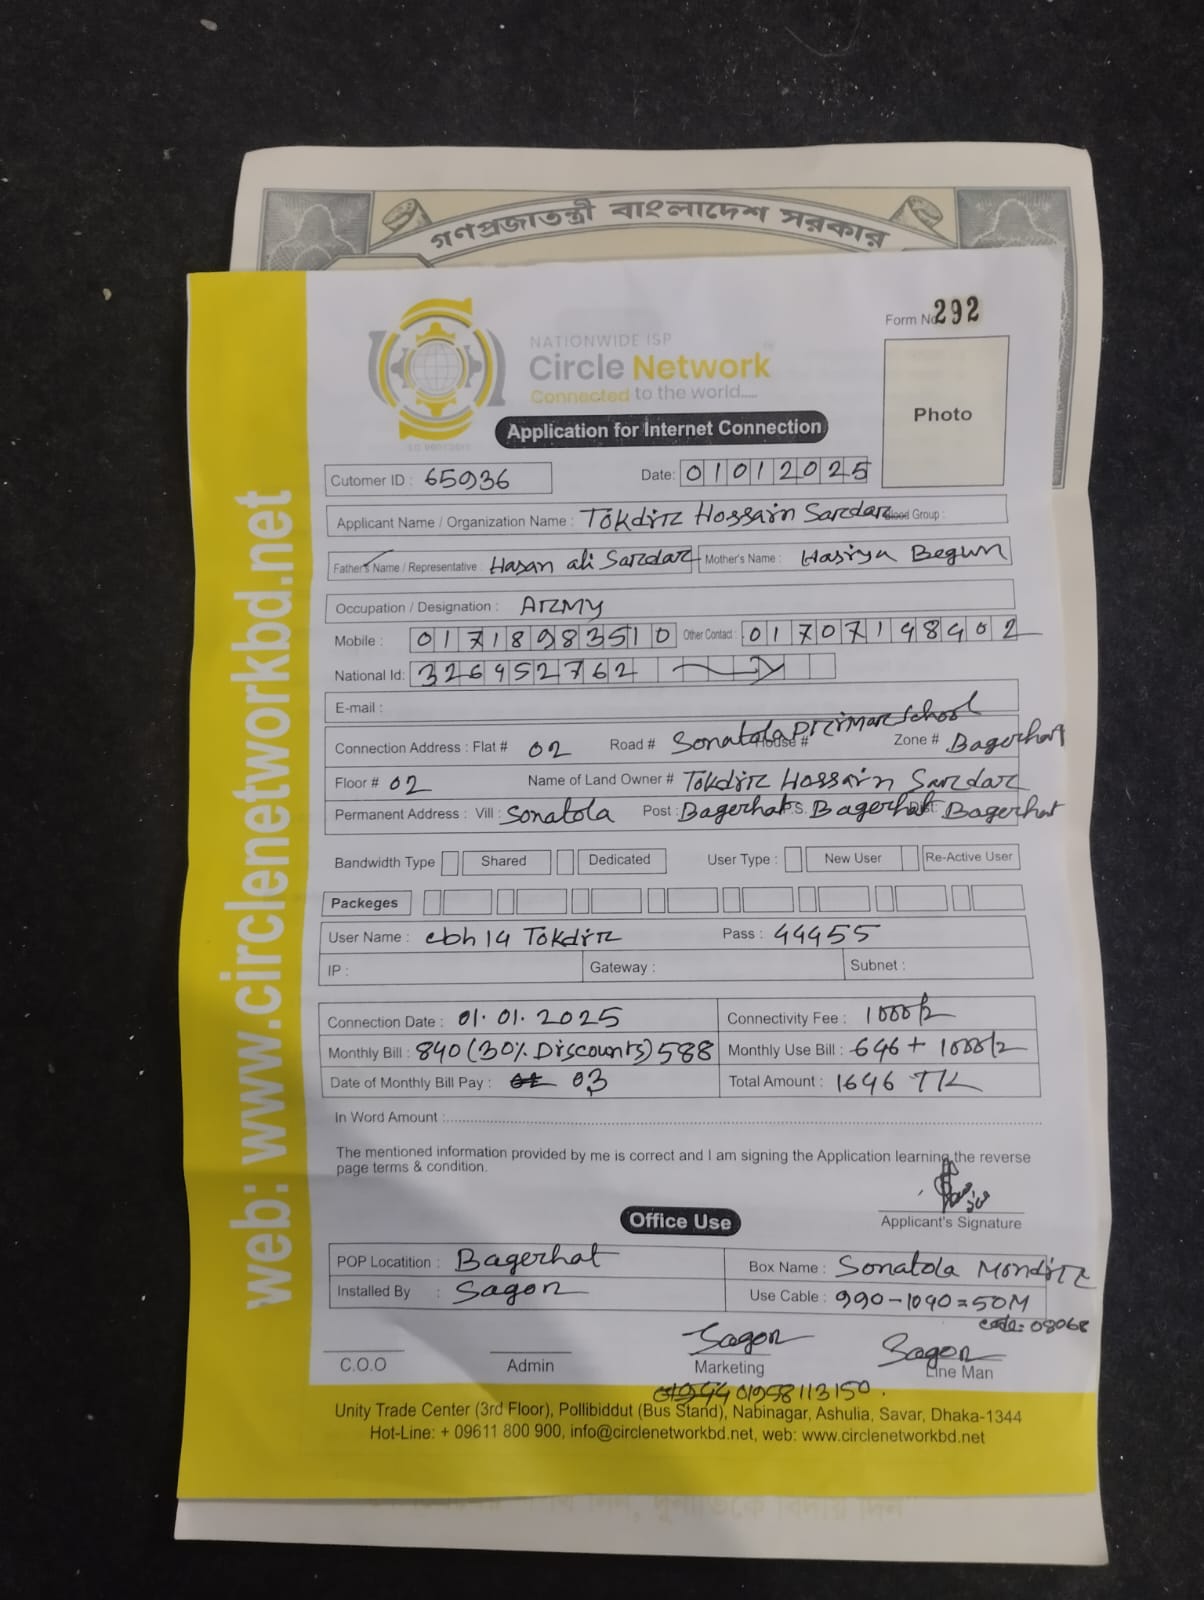 গণপ্রজাতন্ত্রী বাংলাদেশ সরকার
Form No 292
NATIONWIDE ISP
Circle Network
Connected to the world.....
Photo
Application for Internet Connection
Cutomer ID : 65936
Date: 01012025
Applicant Name / Organization Name : Tokdir Hossain Sardar Blood Group :
Father's Name / Representative : Hasan ali Sardar Mother's Name : Hasiya Begum
Occupation / Designation : ARMY
Mobile : 01718983510 Other Contact : 01707198902
National Id: 326952762
E-mail :
Connection Address : Flat # 02 Road # Sonatola Primare School House # Zone # Bagerhat
Floor # 02 Name of Land Owner # Tokdir Hossain Sardar
Permanent Address : Vill : Sonatola Post : Bagerhat P.S. Bagerhat Dist: Bagerhat
Bandwidth Type Shared Dedicated User Type : New User Re-Active User
Packeges
User Name : cbh14 Tokdir Pass : 44455
IP : Gateway : Subnet :
Connection Date : 01.01.2025 Connectivity Fee : 1000/=
Monthly Bill : 840 (30% Discounts) 588 Monthly Use Bill : 646 + 1000/=
Date of Monthly Bill Pay : 03 Total Amount : 1646 TK
In Word Amount :
The mentioned information provided by me is correct and I am signing the Application learning the reverse
page terms & condition.
Applicant's Signature
Office Use
POP Locatition : Bagerhat Box Name : Sonatola Mondir
Installed By : Sagor Use Cable : 990-1040=50M
code: 08068
Sagor Sagor
C.O.O Admin Marketing Line Man
01958113150.
Unity Trade Center (3rd Floor), Pollibiddut (Bus Stand), Nabinagar, Ashulia, Savar, Dhaka-1344
Hot-Line: + 09611 800 900, info@circlenetworkbd.net, web: www.circlenetworkbd.net
web: www.circlenetworkbd.net